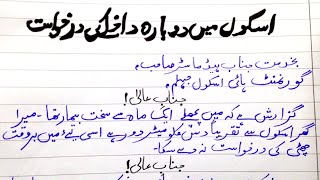 اسکول میں دوبارہ داخلے کی درخواست
بخدمت جناب ہیڈ ماسٹر صاحب،
گورنمنٹ ہائی اسکول جہلم،
جنابِ عالی!
گزارش ہے کہ میں پچھلے ایک ماہ سے سخت بیمار تھا۔ میرا
گھر اسکول سے تقریباً دس کلومیٹر دور ہے اسی لیے میں بروقت
چھٹی کی درخواست نہ دے سکا۔
جنابِ عالی!